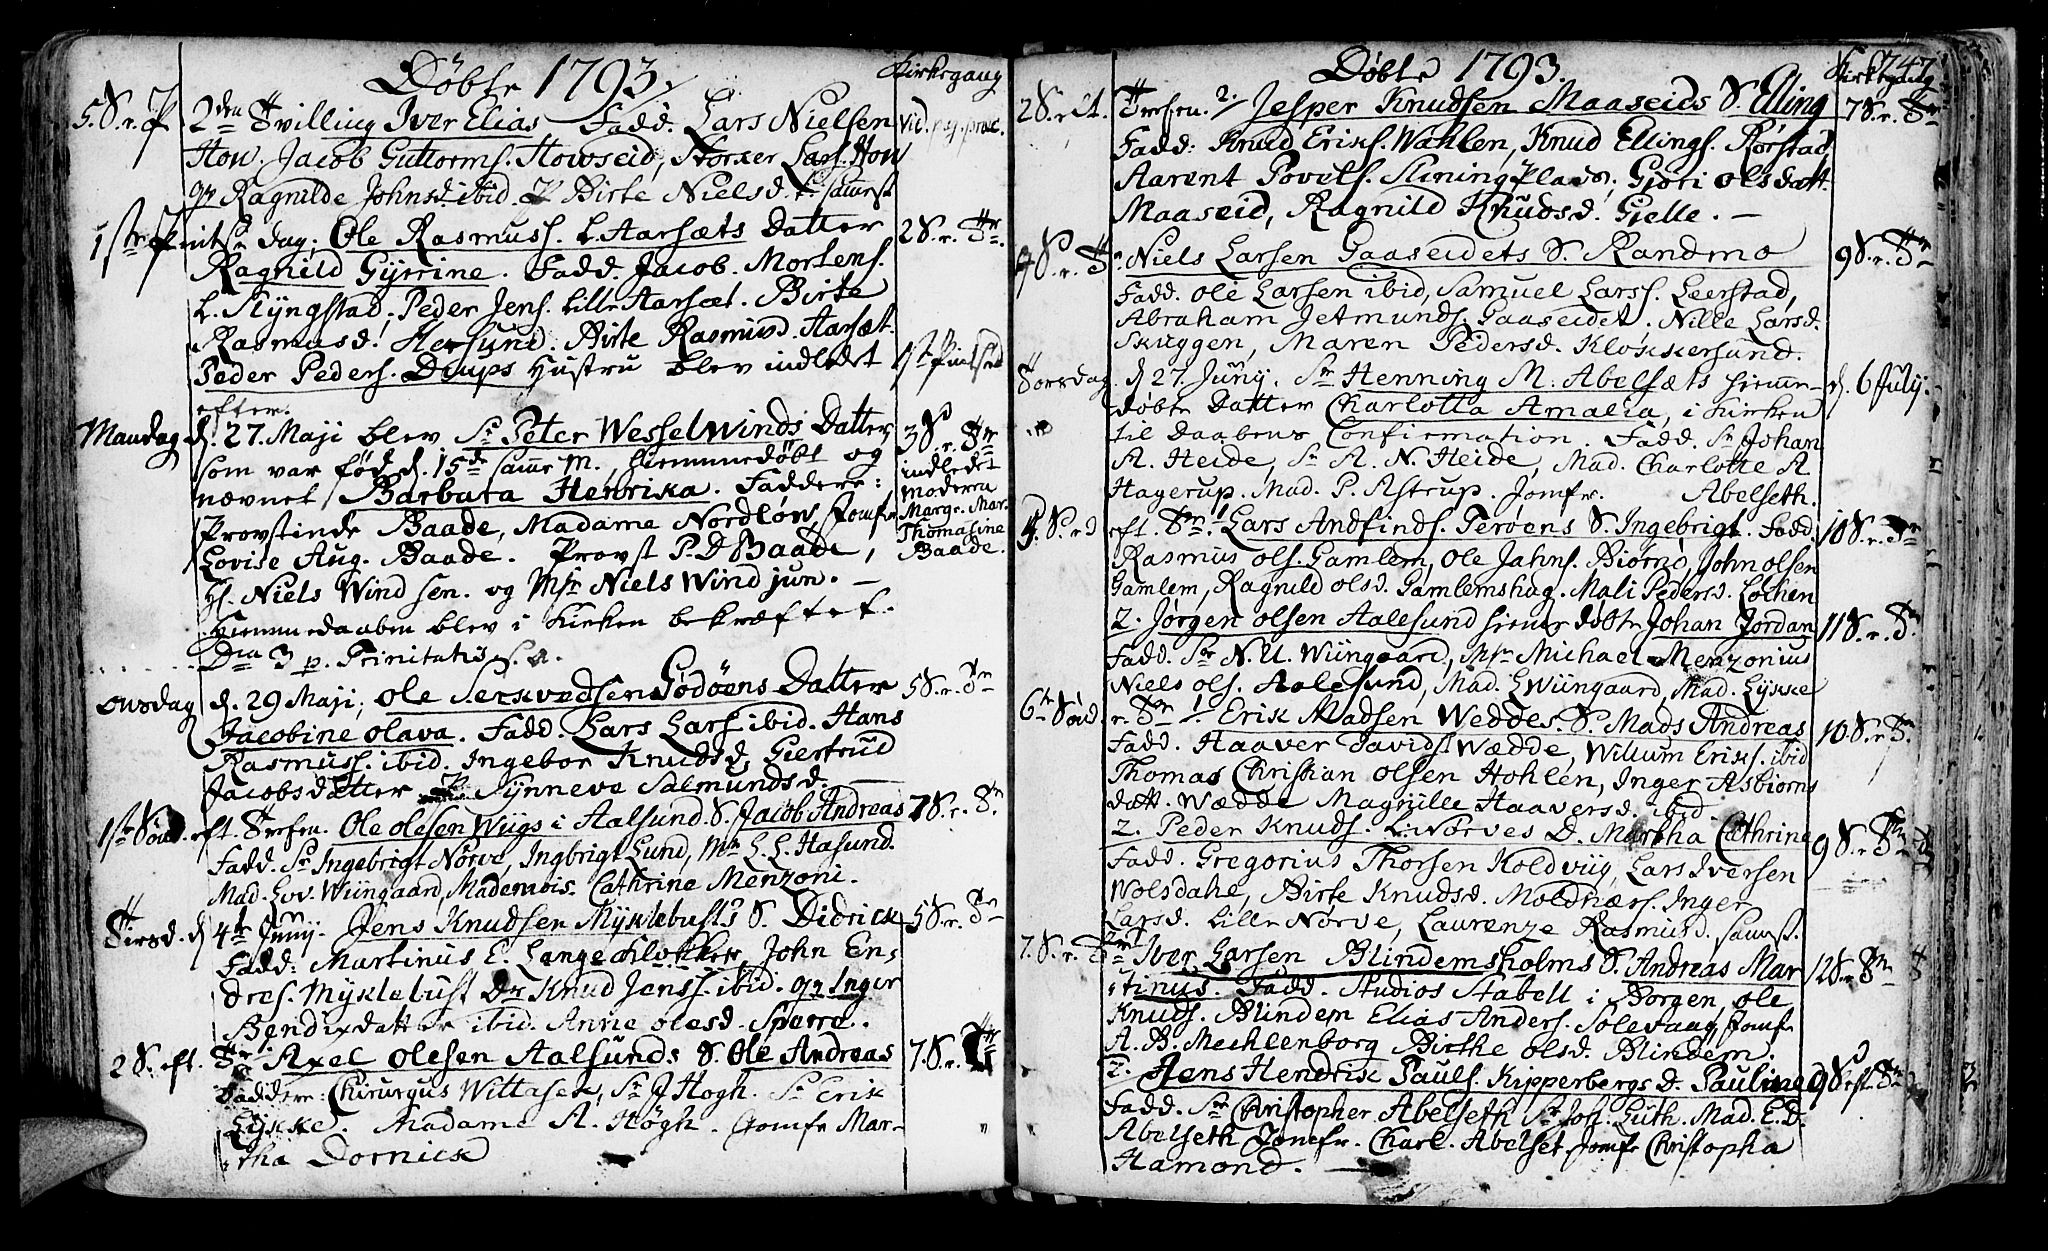 Döbte 1793
Kirkegang
5. S. r. P
2den Tvilling Iver Elias Fadd. Lars Nielsen
Vid. pag. præc.
How. Jacob Guttorms. Howseid, Norker Lars. How
og Ragnilde Johnsd. ibid. Birte Nielsd.
1ste Pintse dag; Ole Rasmuss. L. Aarsæts Datter
2 S. r. Tr.
Ragnild Gyrrine. Fadd. Jacob Mortens.
L. Slyngstad, Peder Jens. Lille Aarsæt. Birte
Rasmusd. Hersund. Birte Rasmusd. Aarsæt.
Peder Peders. Diups Hustru blev indledet
1ste Pintsed
efter.
Mandag d. 27. Maji blev Sr Peter Wessel Winds Datter
3 S. r. Tr
som var föd d. 15de samme M., hiemmedöbt og
indledet
nævnet Barbara Henrika. Faddere:
Moderen
Provstinde Baade, Madame Nordlöw, Jomfr
Marge. Mar.
Lovise Aug. Baade. Provst P. D Baade,
Thomasine
Baade.
Hl. Niels Wind sen. og Msr Niels Wind jun. —
Hiemmedaaben blev i Kirken bekræftet.
Dca 3 p. Trinitatis
Onsdag d. 29 Maji, Ole Serkvedsen Godöens Datter
5 S. r. Tr
Jacobine Olava. Fadd. Lars Lars. ibid. Hans
Rasmuss. ibid. Ingebor Knudsd, Giertrud
Jacobsdatter Synneve Salmundsd. —
1ste Sönd. eft. Trefen. Ole Olesen Wiigs i Aalsund S. Jacob Andreas
7 S. r. Tr
Fadd. Sr Ingebrigt Nörve, Ingbrigt Lund, Mr L. L. Hasund.
Mad. Wiingaard, Mademois. Cathrine Menzoni.
Tirsd. d 4de Juny. Jens Knudsen Myklebusts S. Didrick
5 S. r. Tr
Fadd: Martinus E. Lange Klokker, John En-
dres. Myklebust Dr Knud Jenss. ibid. og Inger
Bendixdatter ibid. Anne Olesd. Sparre.
2 S. eft. Tr 1. Axel Olesen Aalsunds S. Ole Andreas
7. S. r. Tr
Faddere Chirurgus Wittasek, Sr J Hogh. Sr Erik
Lykke. Madame A. Högh. Jomfr Mar-
tha Dornick
Döbte 1793.
Kirkegang
747
2 S. r. Trefen. 2. Jesper Knudsen Maaseids S. Elling
7 S. r. Tr
Fadd: Knud Eriks. Wahlen, Knud Ellings. Rörstad
Aarent Povels. Slining Plads, Giöri Olsdatt.
Maaseid, Ragnild Knudsd. Gielle. —
4 S. r. Tr. Niels Larsen Gaaseidets S. Randmo
9 S. r. Tr
Fadd. Ole Larsen ibid, Samuel Larss. Leerstad,
Abraham Jetmunds. Gaaseidet. Nille Larsd.
Skuggen, Maren Pedersd. Klokkersund.
Torsdag d 27. Juny. Sr Henning M. Abelsæts hiemme-
d. 6 July.
döbte Datter Charlotta Amalia, i Kirken
til Daabens Confirmation. Fadd. Sr Johan
A. Heide, Sr A. N. Heide, Mad. Charlotte A
Hagerup. Mad. P. Astrup. Jomfr. Abelseth.
eft. Tr. 1 Lars Andfinds. Teröens S. Ingebrigt. Fadd.
10 S. r. Tr
Rasmus Ols. Gamlem, Ole Jahns. Biörnö, John Olsen
Gamlem, Ragnild Olsd. Gamlemshag. Mali Pedersd. Lochen
2. Jörgen Olsen Aalesund hiemedöbte Johan Jordan
11 S. r. Tr
Fadd. Sr N. U. Wiingaard, Msr Michael Menzonius
Niels Ols. Aalesund, Mad. L Wiingaard, Mad. Lykke
6te Sönd. r. Tr 1. Erik Madsen Weddes. S. Mads Andreas
10 S. r. Tr.
Fadd. Haaver Davids. Wædde, Willum Eriks. ibid
Thomas Christian Olsen Hohlen, Inger Asbiörns
datt. Wædde Magnille Haaversd. ibid.
2. Peder Knuds. L. Nörves D. Martha Cathrine
9 S. r. Tr
Fadd. Gregorius Thorsen Koldviig, Lars Iversen
Wolsdahe, Birte Knudsd. Moldnæs. Inger
Larsd. Lille Nörve, Laurenze Rasmusd. samst.
7. S. r. Tr 1. Iver Larsen Blindemsholms S. Andreas Mar
12 S. r. Tr
tinus. Fadd. Studios Stabell i Borgen, Ole
Knuds. Blindem Elias Anders. Solevaag, Jomfr
A. B. Mechlenborg Birthe Olsd. Blindem.
2. Jens Hendrik Pauls. Kipperbergs D. Pauline
9 S. eft. Tr
Fadd. Sr Christopher Abelseth Sr Joh. Guth. Mad. E. D.
Abelseth Jomfr. Charl. Abelset Jomfr Christopha
Hamond. —